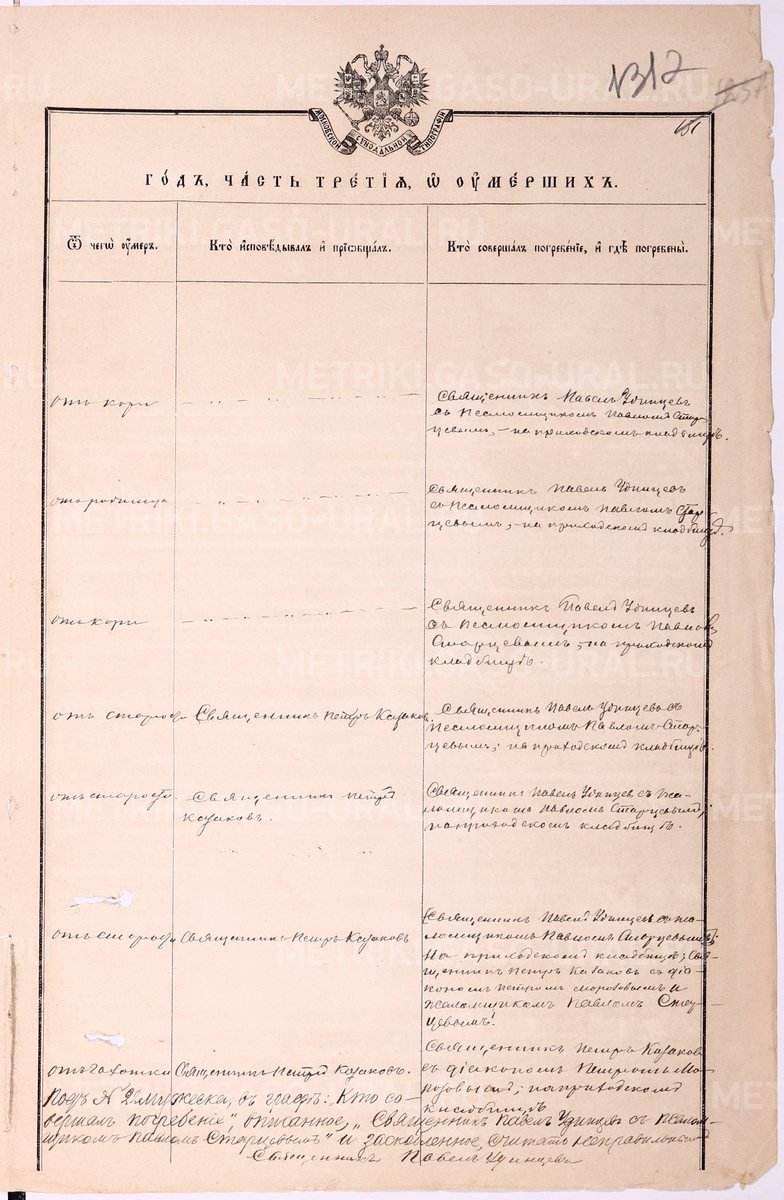 1312
151
МОСКОВСКОЙ СѴНОДАЛЬНОЙ ТИПОГРАФІИ
ГО́ДЪ, ЧА́СТЬ ТРЕ́ТІѦ, Ѡ҆ ОУ҆МЕ́РШИХЪ.
Ѿ чегѡ̀ оу҆́меръ.
Кто̀ и҆сповѣ́дывалъ и҆ прїѡбща́лъ.
Кто̀ соверша́лъ погребе́нїе, и҆ гдѣ̀ погребены̀.
отъ кори
Священникъ Павелъ Удинцевъ
съ псаломщикомъ Павломъ Стар-
цевымъ, – на приходскомъ кладбищѣ.
Священникъ Павелъ Удинцевъ
съ псаломщикомъ Павломъ Стар-
цевымъ, – на приходскомъ кладбищѣ.
отъ кори
Священникъ Павелъ Удинцевъ
съ псаломщикомъ Павломъ
Старцевымъ, на приходскомъ
кладбищѣ.
отъ старости
Священникъ Петръ Казаковъ.
Священникъ Павелъ Удинцевъ съ
псаломщикомъ Павломъ Стар-
цевымъ, на приходскомъ кладбищѣ.
отъ старости
Священникъ Петръ
Казаковъ.
Священникъ Павелъ Удинцевъ съ пса-
ломщикомъ Павломъ Старцевымъ,
на приходскомъ кладбищѣ.
отъ старости
Священникъ Петръ Казаковъ
(Священникъ Павелъ Удинцевъ съ пса-
ломщикомъ Павломъ Старцевымъ);
На приходскомъ кладбищѣ; Свя-
щенникъ Петръ Казаковъ съ діа-
кономъ Петромъ Морозовымъ и
псаломщикомъ Павломъ Стар-
цевымъ.
отъ чахотки
Священникъ Петръ Казаковъ.
Священникъ Петръ Казаковъ
съ діакономъ Петромъ Мо-
розовымъ; на приходскомъ
кладбищѣ
Подъ № мужеска, въ графѣ: „Кто со-
вершалъ погребеніе", описанное, „Священникъ Павелъ Удинцевъ съ псалом-
щикомъ Павломъ Старцевымъ" и заскобленное, считать неправильнымъ
Священникъ Павелъ Удинцевъ
METRIKI.GASO-URAL.RU